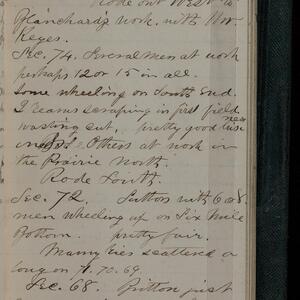 Rode out West to
Blanchard's work. with Mr
Keyes.
Sec. 74. Several men at work
perhaps 12 or 15 in all.
Some wheeling on South End.
2 teams scraping in first field
wasting cut, pretty good
Others at work in
the Prairie North.
Rode South.
Sec. 72. Sutton with 6 or 8
men wheeling up on Six Mile
Bottom. pretty fair.
Many ties scattered a
long on 71. 70. 69.
Sec. 68. Britton just